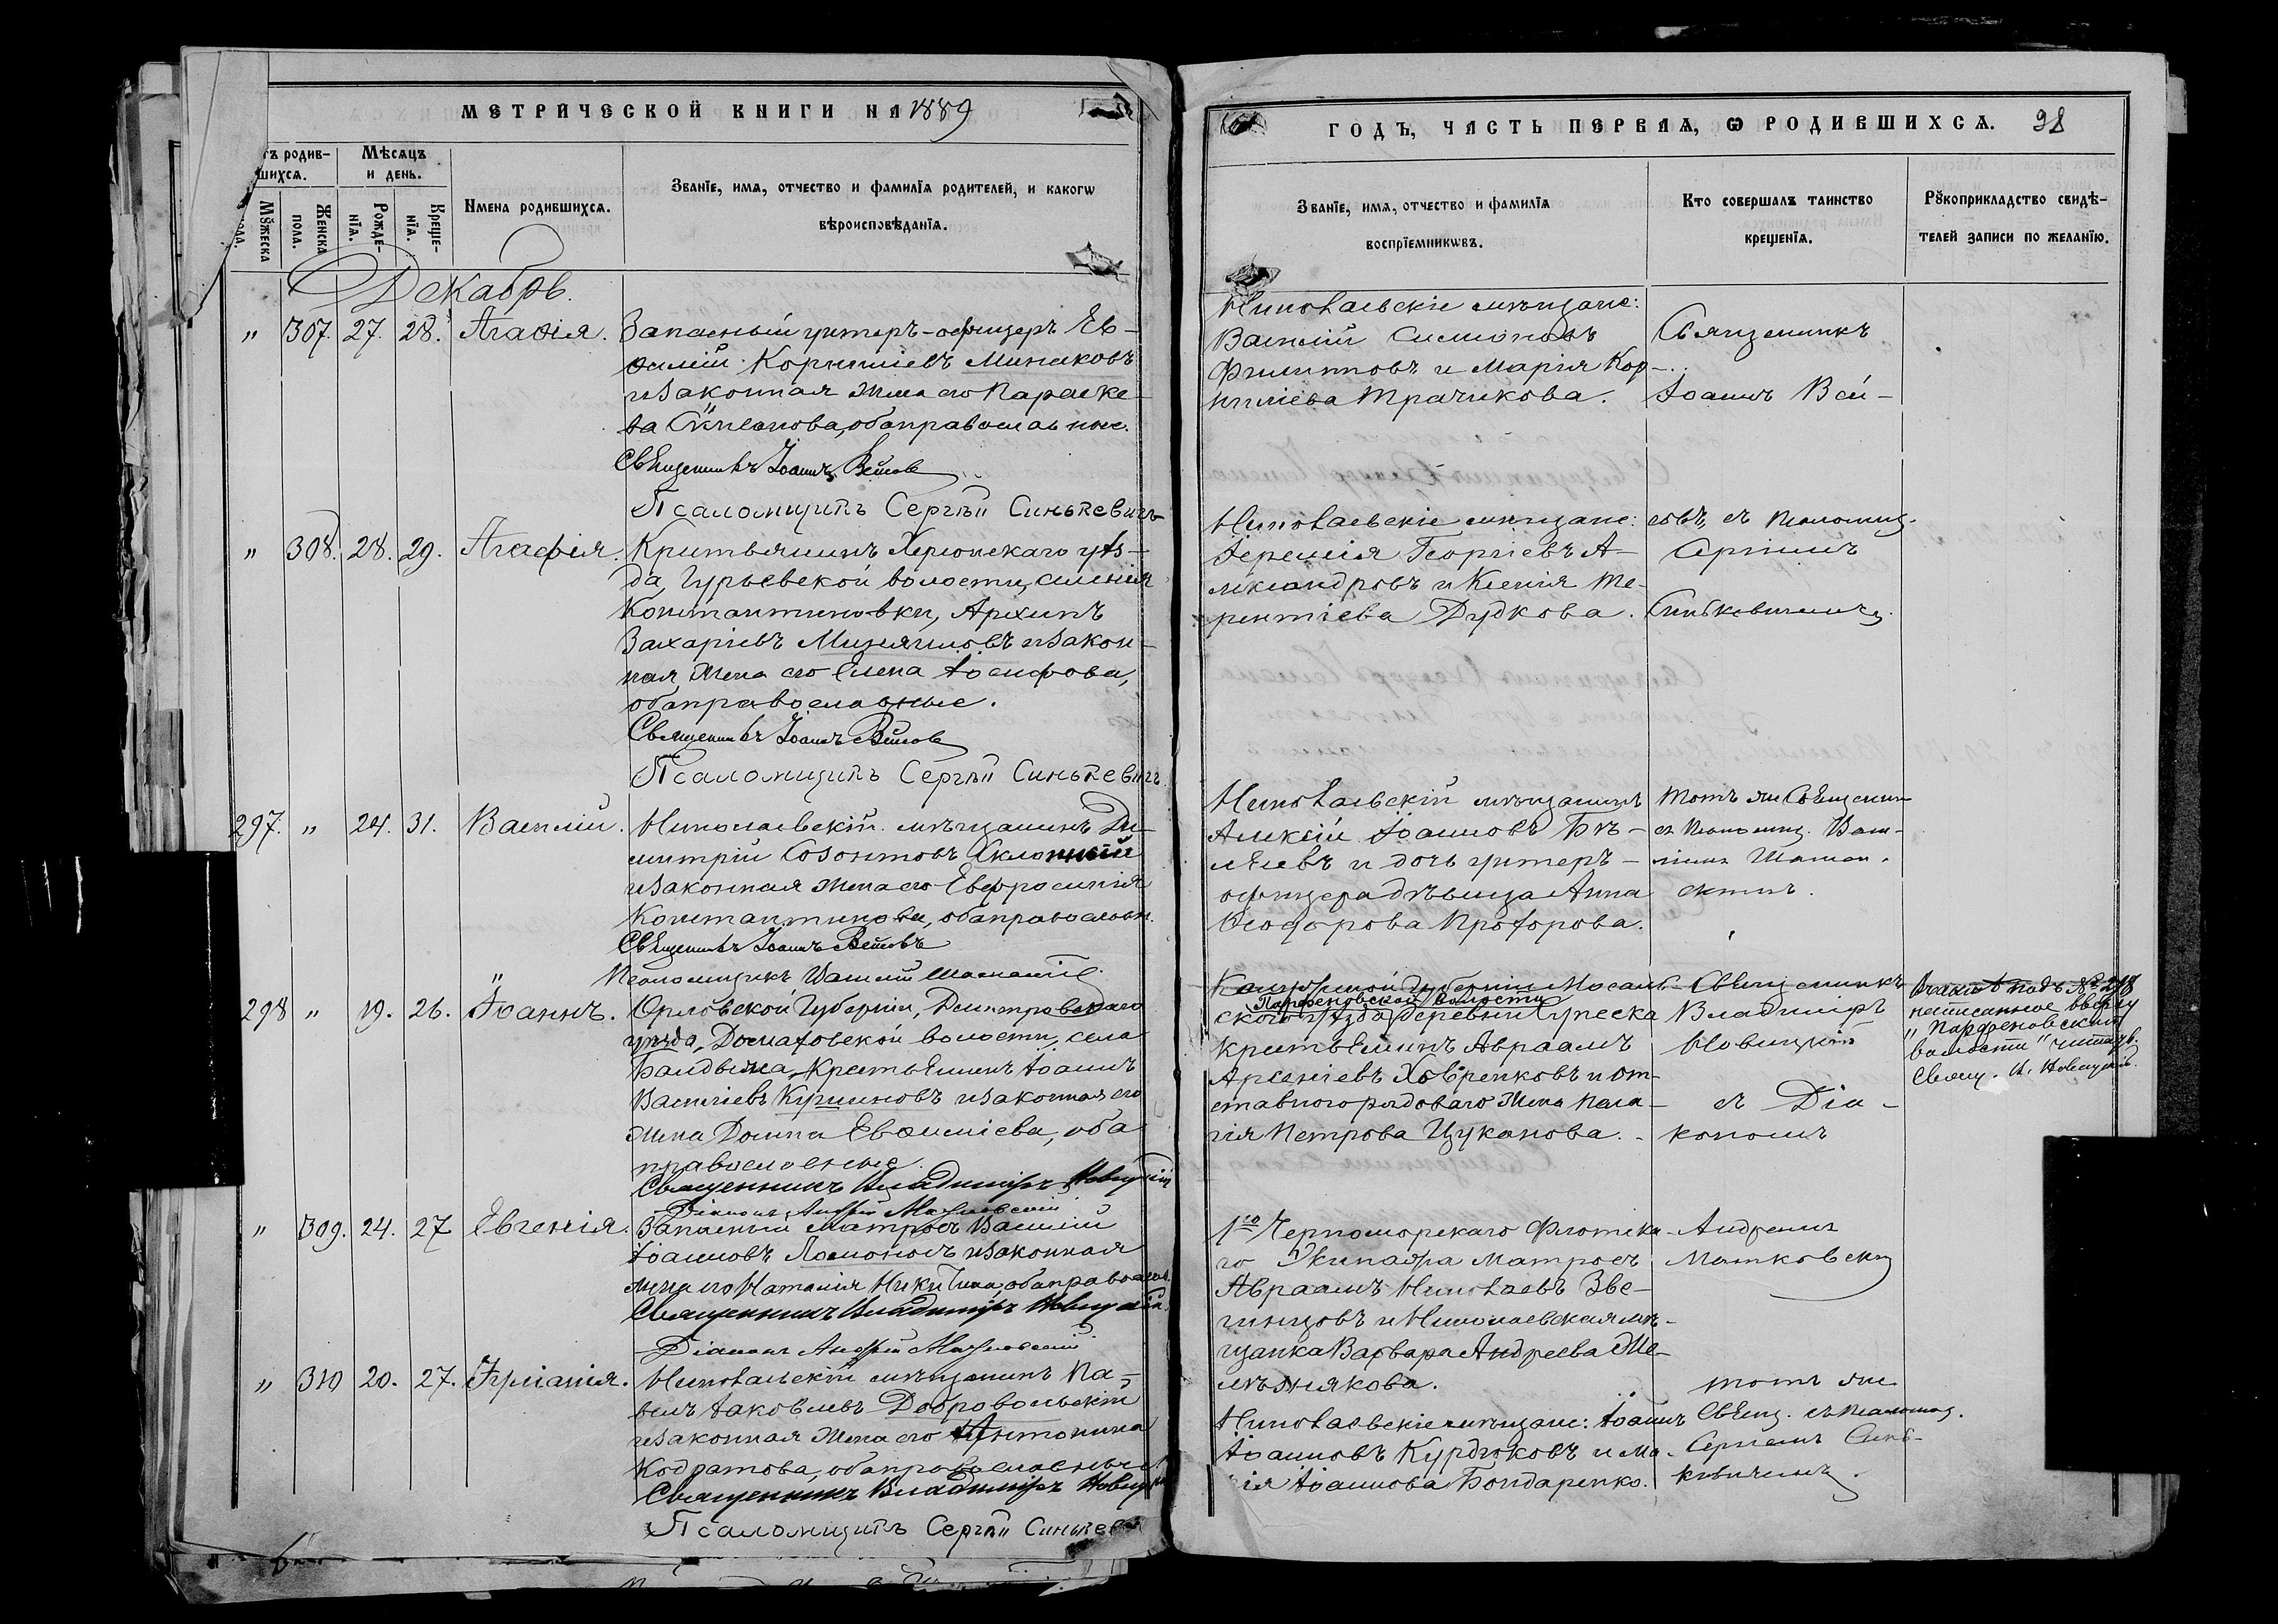 МЕТРИЧЕСКОЙ КНИГИ НА 1889
ГОДЪ, ЧАСТЬ ПЕРВАЯ, Ѡ РОДИВШИХСЯ. 98
тъ родив-
шихся.
Мѣсяцъ
и день.
Мꙋжеска
пола.
Женска
пола.
Рожде-
нїя.
Креще-
нїя.
Имена родившихся.
Званїе, имя, отчество и фамилїя родителей, и какогѡ
вѣроисповѣданїя.
Званїе, имя, отчество и фамилїя
воспрїемникѡвъ.
Кто совершалъ таинство
крещенїя.
Рꙋкоприкладство свидѣ-
телей записи по желанїю.
Декабрь.
" 307. 27. 28. Агаѳія.
Запасный унтеръ-офицеръ Ев-
ѳимій Корниліевъ Минаковъ
и законная жена его Параске-
ва, оба православные.
Священникъ Іоаннъ Вейсовъ
Псаломщикъ Сергѣй Синькевичъ
Николаевскіе мѣщане:
Василій Симоновъ
Филипповъ и Марія Кор-
ниліева Трачикова.
Священникъ
Іоаннъ Вей-
" 308. 28. 29. Агафія.
Крестьянинъ Херсонскаго уѣз-
да, Гурьевской волости, селенія
Константиновки, Архипъ
Захаріевъ и закон-
ная жена его Елена Іосифова,
оба православные.
Священникъ Іоаннъ Вейсовъ
Псаломщикъ Сергѣй Синькевичъ
Николаевскіе мѣщане:
Іеремія Георгіевъ А-
лександровъ и Ксенія Те-
рентіева Дудкова.
совъ съ псаломщ.
Сергіемъ
Синькевичемъ.
297. " 24. 31. Василій.
Николаевскій мѣщанинъ Ди-
митрій Созонтовъ
и законная жена его Евфросинія
Константинова, оба православн.
Священникъ Іоаннъ Вейсовъ
Псаломщикъ
Николаевскій мѣщанинъ
Алексій Іоанновъ Бѣ-
ляевъ и дочь унтеръ-
офицера дѣвица Анна
Ѳеодорова Прохорова.
Тотъ же Священни
съ псаломщ.
298 " 19. 26. Іоаннъ.
Орловской Губерніи, Дмитровскаго
уѣзда, Домаховской волости, села
крестьянинъ Іоаннъ
Василіевъ и законная его
жена Домна Евѳиміева, оба
православные.
Священникъ Владиміръ Новицкій
Діаконъ Андрей Матковскій
Калужской Губерніи Мосаль-
Парфеновской волости
скаго уѣзда деревни
крестьянинъ Авраамъ
Арсеніевъ Ховренковъ и от-
ставного рядоваго жена Пела-
гія Петрова Цуканова.
Священникъ
Владиміръ
Новицкій
съ Діа-
кономъ
подъ № 298
написанное вверху
"Парфеновской
волости" читать.
Свящ. В. Новицкій.
" 309. 24. 27 Евгенія.
Запасный матросъ Василій
Іоанновъ и законная
жена его Наталія Никитина, оба православн.
Священникъ Владиміръ Новицкій
Діаконъ Андрей Матковскій
1го Черноморскаго Флотска-
го Экипажа матросъ
Авраамъ Николаевъ Зве-
гинцовъ и Николаевская мѣ-
щанка Варвара Андреева Ме-
Андреемъ
Матковски
" 310 20. 27.
Николаевскій мѣщанинъ Па-
велъ Іаковлевъ Добровольскій
и законная жена его Антонина
Кодратова, оба православные
Священникъ Владиміръ Новицкій
Псаломщикъ Сергѣй Синькев
Николаевскіе мѣщане: Іоаннъ
Іоанновъ Курдюковъ и Ма-
ія Іоаннова Бондаренко.
тотъ же
Свящ. съ псаломщ.
Сергіемъ Синь-
кевичемъ.